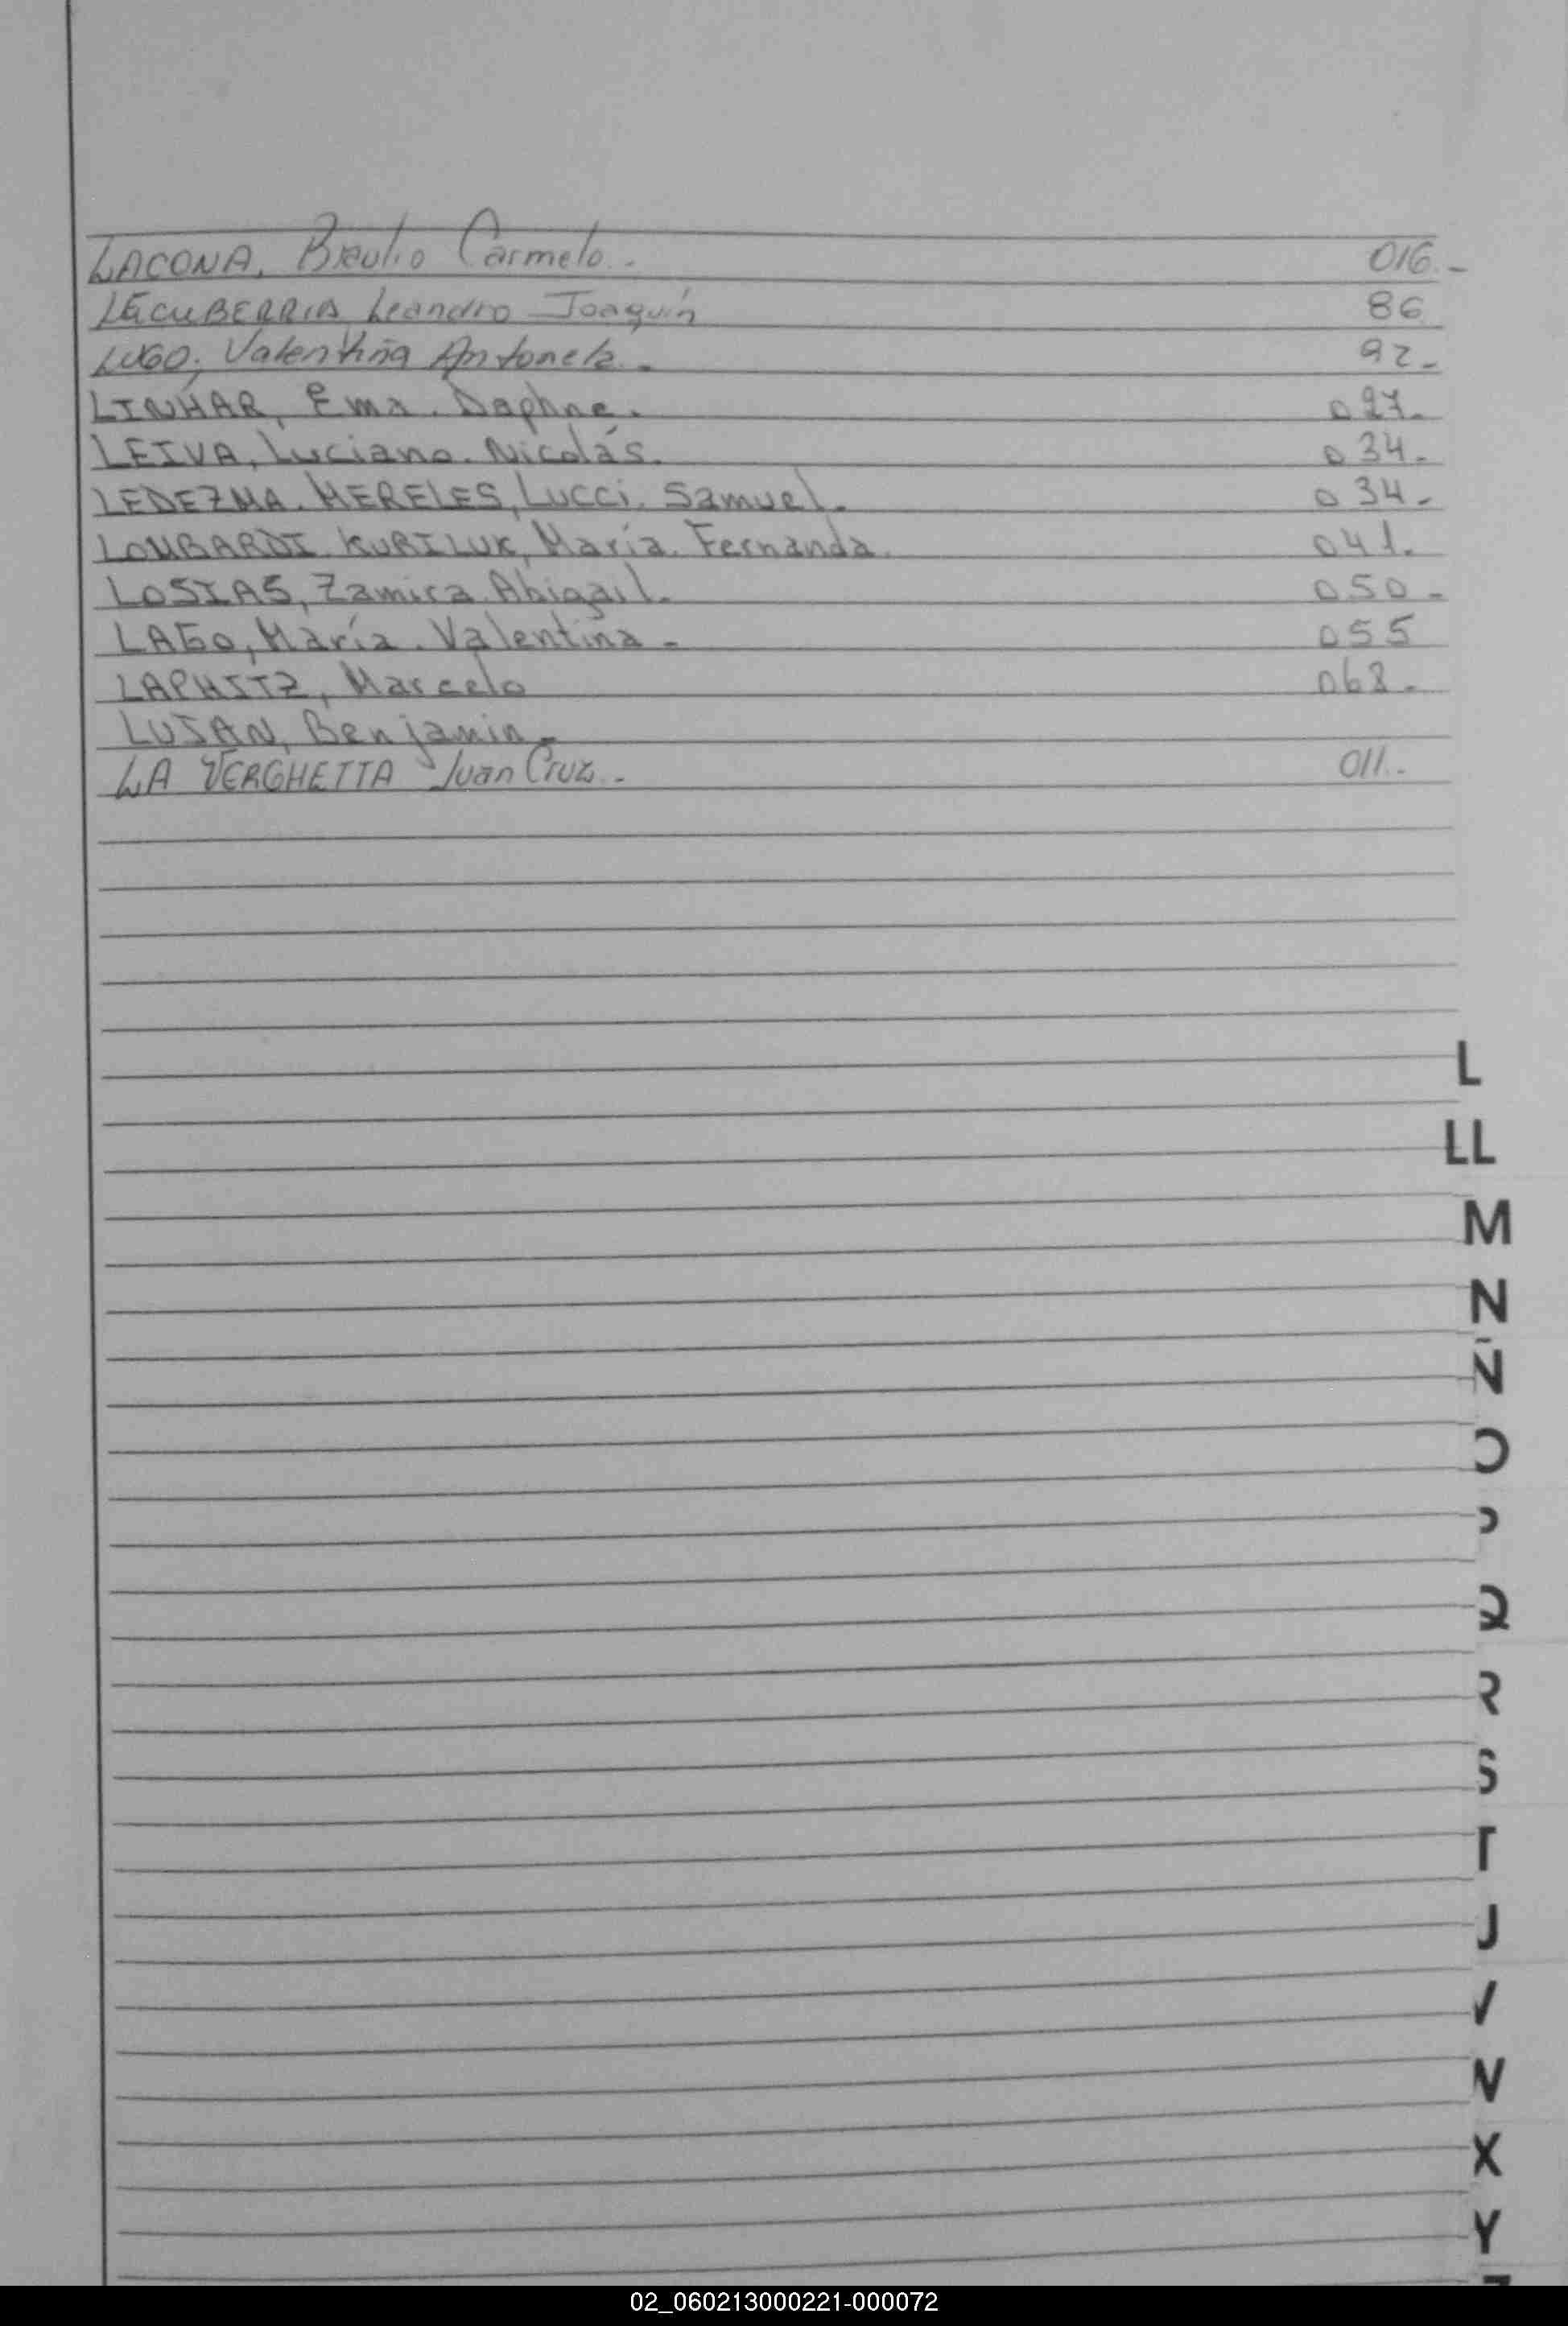 LACONA, Braulio Carmelo.- 016.-
LECUBERRIA Leandro Joaquín 86
LUGO, Valentina Antonela.- 92.-
LINHAR, Ema. Daphne. 027.
LEIVA, Luciano. Nicolás. 034.
LEDEZMA. MERELES, Lucci. Samuel. 034.
LOMBARDI KURILUK, María. Fernanda 041.
LOSIAS, Zamira. Abigail. 050-
LAGO, María. Valentina- 055
Marcelo 068.
LUJAN, Benjamin-
LA VERGHETTA Juan Cruz.- 011.-
L
LL
M
N
Ñ
O
P
Q
R
S
T
U
V
W
X
Y
02_060213000221-000072